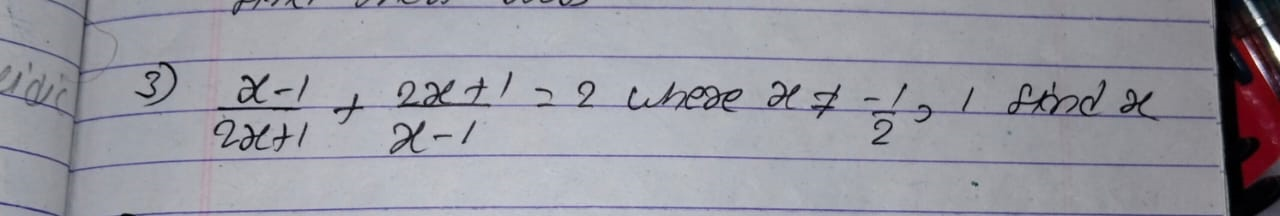 3) \frac{x-1}{2x+1} + \frac{2x+1}{x-1} = 2 where x ≠ \frac{-1}{2}, 1 find x